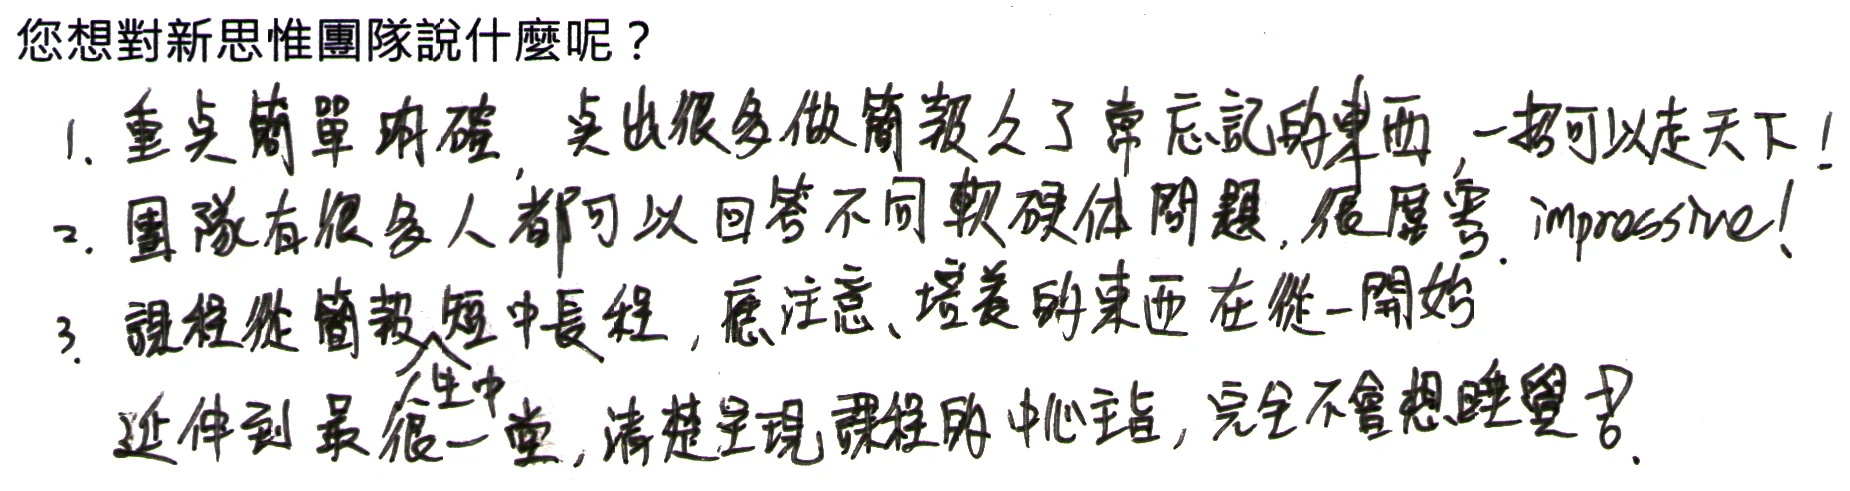 您想對新思惟團隊說什麼呢？
1. 重点簡單明確，点出很多做簡報久了常忘記的東西，一招可以走天下！
2. 團隊有很多人都可以回答不同軟硬体問題，很厲害. impressive!
3. 課程從簡報人生中短中長程，應注意、培養的東西在從一開始
延伸到最很一堂，清楚呈現課程的中心主旨，完全不會想睡覺